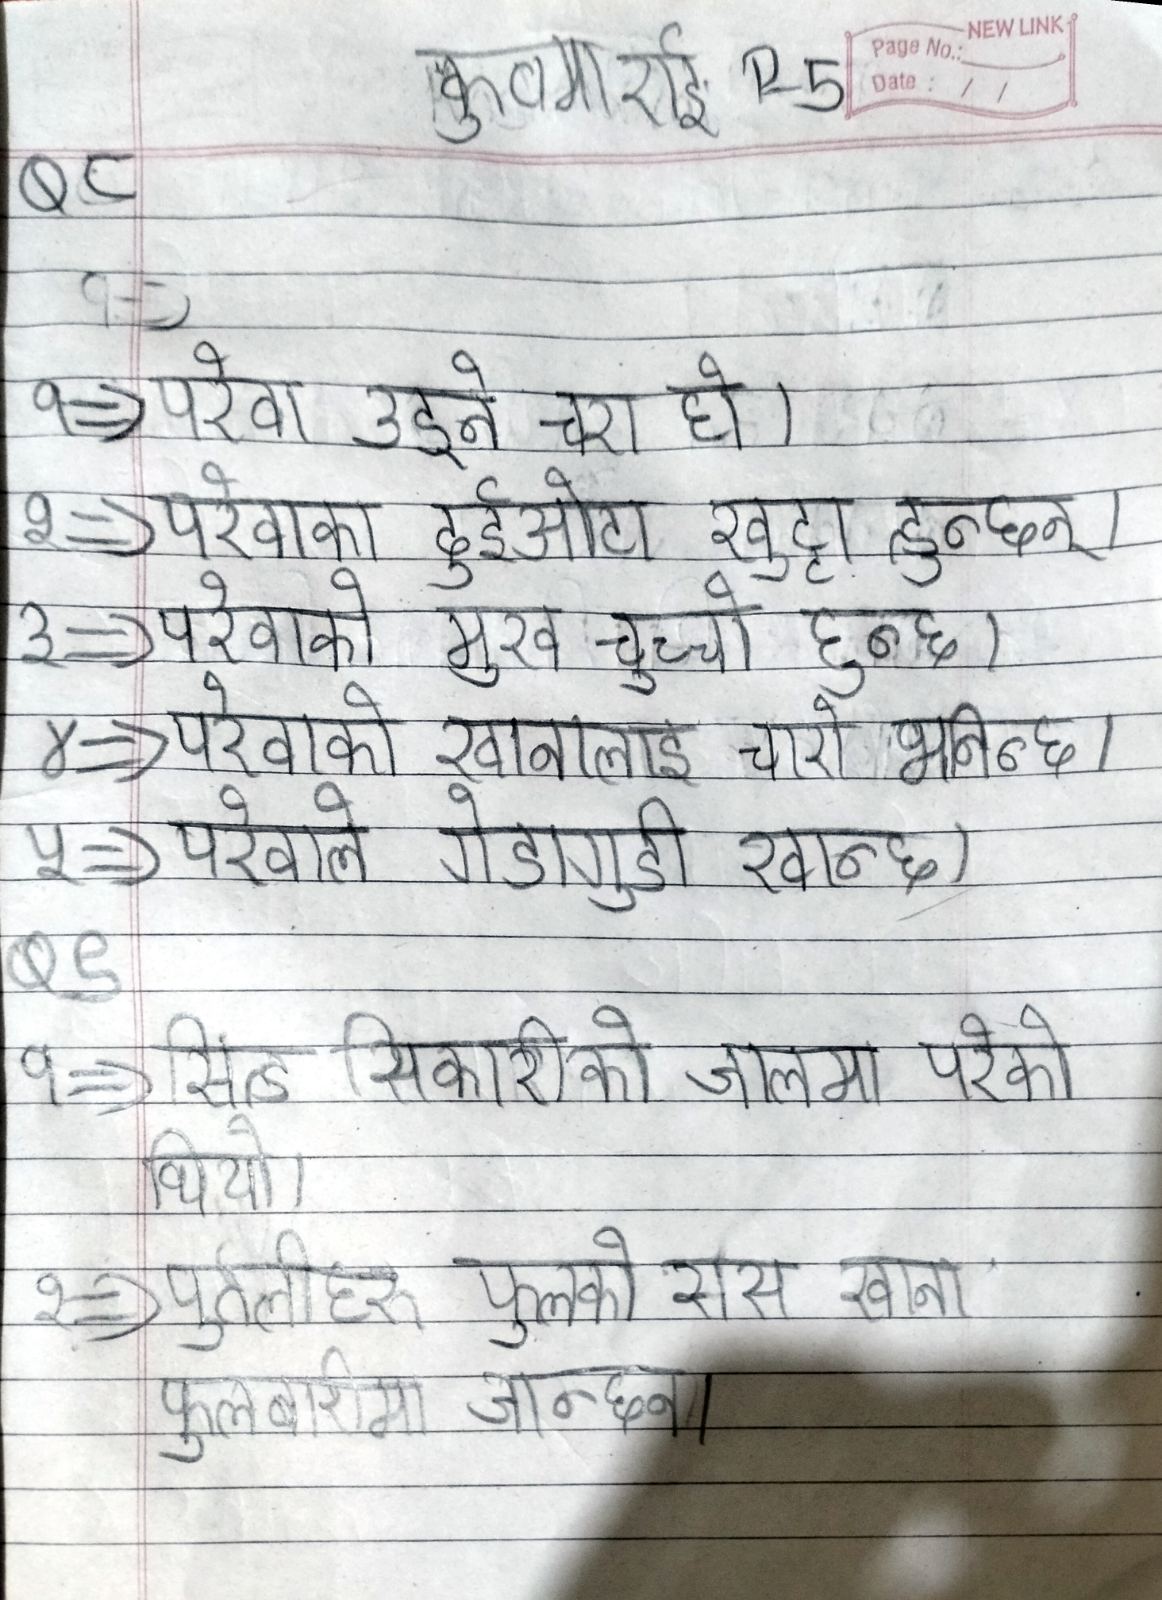 NEW LINK
Page No.:
Date : / /
कुवमा राई P-5
Q८
१⇒
१⇒ परेवा उड्ने चरा हो।
२⇒ परेवाका दुईओटा खुट्टा हुन्छन्।
३⇒ परेवाको मुख चुच्चो हुन्छ।
४⇒ परेवाको खानालाइ चारो भनिन्छ।
५⇒ परेवाले गेडागुडी खान्छ।
Q९
१⇒ सिंह सिकारीको जालमा परेको
थियो।
२⇒ पुतलीहरू फुलको रास खाना
फुलबारीमा जान्छन।